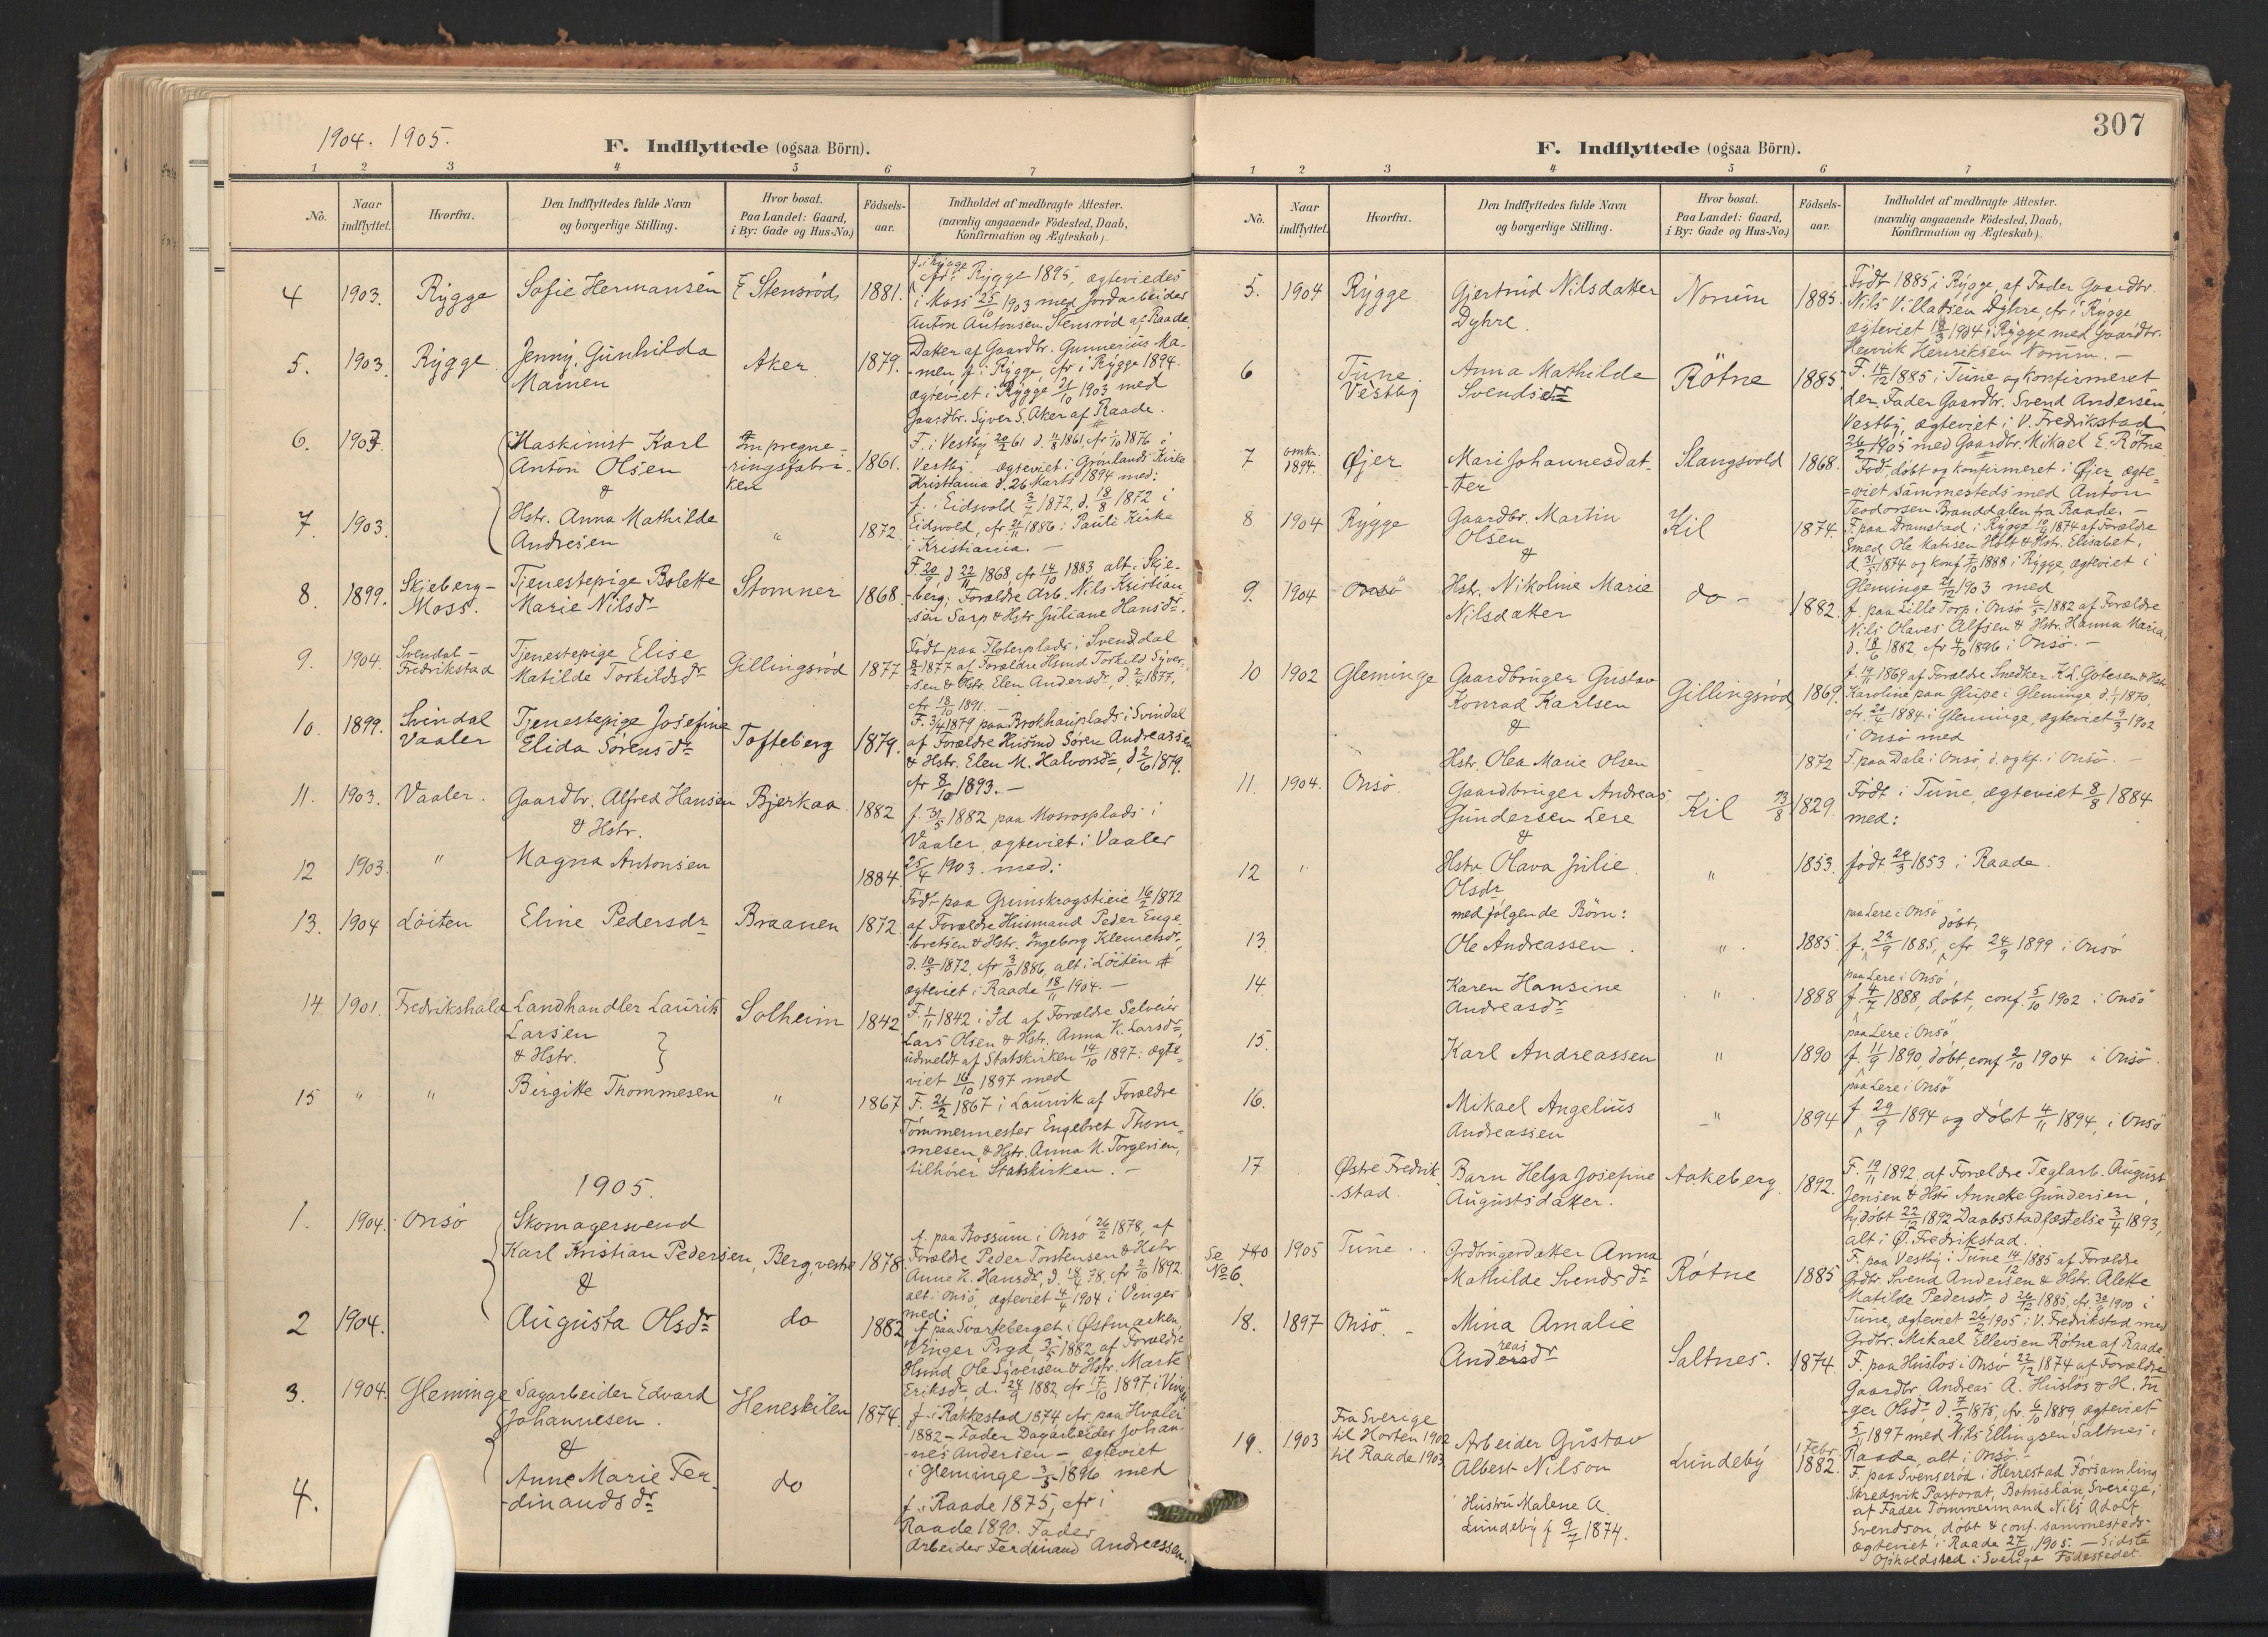 1904. 1905.
F. Indflyttede (ogsaa Börn).
1 2 3 4 5 6 7
No. Naar indflyttet. Hvorfra. Den Indflyttedes fulde Navn og borgerlige Stilling. Hvor bosat. Paa Landet: Gaard, i By: Gade og Hus-No.) Födsels-aar. Indholdet af medbragte Attester. (navnlig angaaende Födested, Daab, Konfirmation og Ægteskab).
4 1903. Rygge Sofie Hermansen Stensrød 1881.
f. i Rygge
cfr i Rygge 1895, ægteviedes
i Moss 25/10 1903 med Jordarbeider
Anton Antonsen Stensrød af Raade.
5. 1903. Rygge Jenny Gunhilda
Mamen
Aker 1879.
Datter af Gaardbr. Gunnerius Ma-
-men f. i Rygge, cfr i Rygge 1894.
ægteviet i Rygge 21/10 1903 med
Gaardbr. Syver S. Aker af Raade.
6. 1903. Maskinist Karl
Anton Olsen
&
Impregne-
-ringsfabri-
ken
1861.
F. i Vestby 20/2 61 d. 11/8 1861, cfr 1/10 1876 i
Vestby. ægteviet i Grønlands Kirke
Kristiania d. 26 Marts 1894 med:
7. 1903. Hstr. Anna Mathilde
Andresen
" 1872
f. i Eidsvold 3/7 1872, d. 18/8 1872 i
Eidsvold, cfr 21/11 1886 i Pauli Kirke
i Kristiania. –
8. 1899. Skjeberg-
Moss.
Tjenestepige Bolette
Marie Nilsdr
Stomner 1868.
F. 20/9, d 22/11 1868, cfr 14/10 1883 alt i Skje-
-berg; Forældre Arb. Nils Kristian
-sen Sarp & Hstr Juliane Hansdr.
9. 1904. Svendal-
Fredrikstad
Tjenestepige Elise
Matilde Torkildsdr
Gillingsrød 1877
Født paa Floterplads i Svenddal
8/2 1877 af Forældre Hsmd Torkild Syver-
-sen & Hstr. Elen Andersdr, d. 2/4 1877,
cfr 18/10 1891. –
10. 1899. Svindal
Vaaler
Tjenestepige Josefine
Elida Sørensdr
Tofteberg 1879.
F. 3/4 1879 paa Brokhauplads i Svindal
af Forældre Husmd Søren Andreassen
& Hstr. Elen M. Halvorsdr, d 2/6 1879.
cfr 8/10 1893. –
11. 1903. Vaaler. Gaardbr. Alfred Hansen
& Hstr.
Bjerkaa. 1882
f. 31/5 1882 paa Mosrosplads i
Vaaler, ægteviet i Vaaler
25/4 1903. med:
12 1903. " Magna Antonsen 1884.
13. 1904 Löiten Eline Pedersdr Braanen 1872.
Født paa Grimskrogstieie 16/2 1872
af Forældre Husmand Peder Enge
-bretsen & Hstr. Ingeborg Klemetsdr,
d. 10/3 1872, cfr 3/10 1886, alt i Löiten
ægteviet i Raade 18/11 1904. –
14. 1901. Fredrikshald Landhandler Laurits
Larsen
& Hstr.
Solheim 1842
F. 1/11 1842 i Id af Forældre Selveier
Lars Olsen & Hstr. Anna K. Larsdr,
udmeldt af Statskirken 14/10 1897: ægte-
viet 16/10 1897 med
15 " " Birgitte Thommesen " 1867
F. 21/2 1867 i Laurvik af Forældre
Tømmermester Engebret Thom-
mesen, & Hstr. Anna M. Torgersen,
tilhører Statskirken. –
1905.
1. 1904. Onsö Skomagersvend
Karl Kristian Pedersen, Berg, vestre 1878.
&
f. paa Rossum i Onsö 26/2 1878, af
Forældre Peder Torstensen & Hstr.
Anne K. Hansdr, d. 18/4 78, cfr 2/10 1892.
alt i Onsö, ægteviet 4/4 1904 i Vinger
med:
2 1904. Augusta Olsdr do 1882
f. paa Svarteberget i Østmarken,
Vinger Prgd, 3/5 1882 af Forældre
Hsmd Ole Syversen & Hstr. Marte
Eriksdr, d. 24/9 1882, cfr 17/10 1897 i Vinger
3. 1904. Gleminge Sagarbeider Edvard
Johannesen.
&
Heneskilen 1874.
f. i Rakkestad 1874, cfr. paa Hvaler
1882 – Fader Dagarbeider Johan-
-nes Andersen – ægteviet
i Gleminge 3/5 1896 med
4. Anne Marie Fer-
-dinandsdr
do
f. i Raade 1875, cfr i
Raade 1890. Fader
Arbeider Ferdinand Andreassen.
307
F. Indflyttede (ogsaa Börn).
1 2 3 4 5 6 7
No. Naar indflyttet. Hvorfra. Den Indflyttedes fulde Navn og borgerlige Stilling. Hvor bosat. Paa Landet: Gaard, i By: Gade og Hus-No.) Födsels-aar. Indholdet af medbragte Attester. (navnlig angaaende Födested, Daab, Konfirmation og Ægteskab).
5. 1904 Rygge Gjertrud Nilsdatter
Dyhre.
Norum 1885.
Født 1885 i Rygge, af Fader Gaardbr.
Nils Villadsen Dyhre, cfr i Rygge
ægteviet 18/3 1904 i Rygge med Gaardbr.
Henrik Henriksen Norum. –
6 Tune
Vestby
Anna Mathilde
Svendsdr
Rötne 1885
F. 14/12 1885 i Tune og konfirmeret
der. Fader Gaardbr. Svend Andersen,
Vestby, ægteviet i V. Fredrikstad
26/2 1905 med Gaardbr. Mikael E. Rötne.
7 omkr.
1894.
Øjer Mari Johannesdat-
-ter
Slangsvold 1868.
Født, døbt og konfirmeret i Øjer, ægte-
-viet sammesteds med Anton
Teodorsen Branddalen fra Raade. –
8 1904 Rygge Gaardbr. Martin
Olsen
&
Kil 1874.
F. paa Dramstad i Rygge 19/4 1874 af Forældre
Smed Ole Matisen Holt & Hstr. Elisabet.
d. 31/5 1874 og konf 7/10 1888 i Rygge, ægteviet i
Gleminge 21/12 1903 med
9. 1904 Onsö Hstr. Nikoline Marie
Nilsdatter
do – 1882.
f. paa Lille Torp i Onsö 6/5 1882 af Forældre
Nils Olaves Alfsen & Hstr. Hanna Maria,
d. 18/6 1882, cfr 4/10 1896 i Onsö. –
10 1902 Gleminge Gaardbruger Gustav
Konrad Karlsen
&
Gillingsrød 1869.
f. 19/11 1869 af Forældre Snedker K. L. Gotesen & Hstr.
Karoline paa Glupe i Gleminge d. 1/1 1870,
cfr. 20/4 1884 i Gleminge, ægteviet 9/3 1902
i Onsö med
Hstr. Olea Marie Olsen – 1872 F. paa Dale i Onsö, d. og kf. i Onsö. –
11. 1904. Onsö. Gaardbruger Andreas
Gundersen Lere
&
Kil 23/8 1829.
Født i Tune, ægteviet 8/8 1884
med:
12 " Hstr. Olava Julie
Olsdr
" 1853. født 29/3 1853 i Raade.
medfølgende Börn:
13. Ole Andreassen. " 1885.
paa Lere i Onsö
døbt,
f. 23/9 1885, cfr 24/9 1899 i Onsö
14. Karen Hansine
Andreasdr
" 1888
paa Lere i Onsö,
f. 4/7 1888, døbt, conf. 5/10 1902 i Onsö
15. Karl Andreassen " 1890
paa Lere i Onsö
f. 11/9 1890, døbt, conf 2/10 1904 i Onsö.
16. Mikael Angelius
Andreassen
" 1894
paa Lere i Onsö
f. 29/9 1894 og døbt 4/11 1894, i Onsö
17 Østre Fredrik
-stad.
Barn Helga Josefine
Augustsdatter.
Aakeberg 1892.
F. 19/11 1892, af Forældre Teglarb. August
Jensen & Hstr Anneke Gundersen,
hjdøbt 22/12 1892, Daabsstadfæstelse 3/4 1893,
alt i Ø. Fredrikstad.
Se No 6. 1905 Tune. Grdbrugerdatter Anna
Mathilde Svendsdr
Rötne 1885
F. paa Vestby i Tune 14/12 1885 af Forældre
Grdbr. Svend Andersen & Hstr. Alette
Matilde Pedersdr, d 26/12 1885, cfr. 30/9 1900 i
Tune, ægteviet 26/2 1905 i V. Fredrikstad med
Grdbr. Mikael Ellevsen Rötne af Raade.
18. 1897 Onsö. – Mina Amalie
Andreasdr
Saltnes. 1874.
F. paa Huslös i Onsö 22/12 1874 af Forældre
Gaardbr. Andreas A. Huslös & H. In
-ger Olsdr, d. 7/2 1875, cfr. 6/10 1889 ægteviet
5/11 1897 med Nils Ellingsen Saltnes i
Raade, alt i Onsö. –
19. 1903 Fra Sverige
til Horten 1902
til Raade 1903.
Arbeider Gustav
Albert Nilson
Lundeby 1 Febr.
1882.
F. paa Svenseröd i Herrestad Forsamling
Skredsvik Pastorat, Bohuslän, Sverige,
af Fader Tømmermand Nils Adolf
Svendson, døbt & conf. sammesteds–
ægteviet i Raade 27/10 1905. – Sidste
Opholdsted i Sverige Fødestedet.
Hustru Malene A.
Lundeby f 9/7 1874.